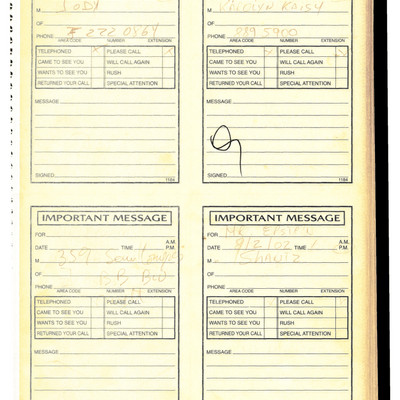 M JODY
OF
PHONE 222 0864
AREA CODE NUMBER EXTENSION
TELEPHONED X PLEASE CALL X
CAME TO SEE YOU WILL CALL AGAIN
WANTS TO SEE YOU RUSH
RETURNED YOUR CALL SPECIAL ATTENTION
MESSAGE
SIGNED 1184
M
OF
PHONE 989 5900
AREA CODE NUMBER EXTENSION
TELEPHONED PLEASE CALL
CAME TO SEE YOU WILL CALL AGAIN
WANTS TO SEE YOU RUSH
RETURNED YOUR CALL SPECIAL ATTENTION
MESSAGE
SIGNED 1184
IMPORTANT MESSAGE
FOR
DATE TIME A.M. P.M.
M 359
OF
PHONE
AREA CODE NUMBER EXTENSION
TELEPHONED PLEASE CALL
CAME TO SEE YOU WILL CALL AGAIN
WANTS TO SEE YOU RUSH
RETURNED YOUR CALL SPECIAL ATTENTION
MESSAGE
IMPORTANT MESSAGE
FOR MR
DATE 9/2/02 TIME A.M. P.M.
M SHANTZ
OF
PHONE
AREA CODE NUMBER EXTENSION
TELEPHONED PLEASE CALL
CAME TO SEE YOU WILL CALL AGAIN
WANTS TO SEE YOU RUSH
RETURNED YOUR CALL SPECIAL ATTENTION
MESSAGE